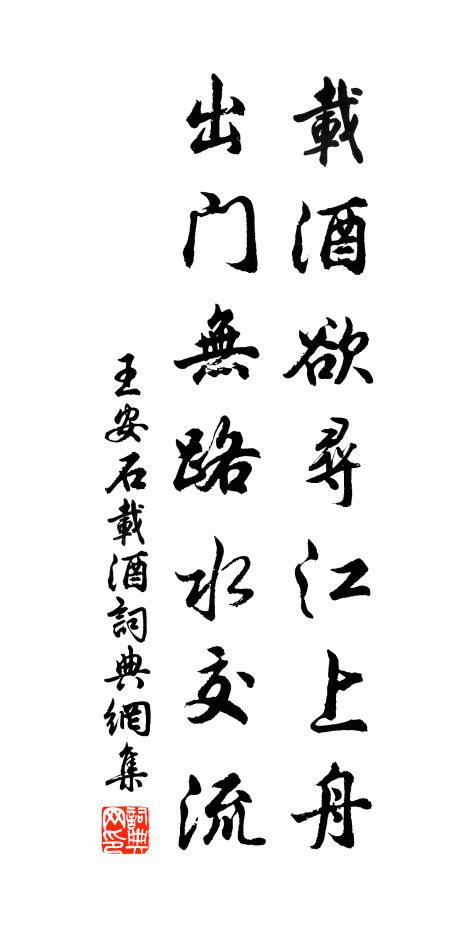 載酒欲尋江上舟
出門無路水交流
王安石載酒詞典網集
詞典
网印